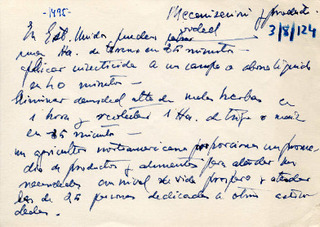 -1995-
Mecanización y product.
3/8/124
En Est. Unidos pueden
una Ha. de terreno en 25 minutos -
aplicar insecticida a un campo o abono líquido
en 40 minutos -
Eliminar densidad alta de malas hierbas en
1 hora y recolectar 1 Ha. de trigo o maiz
en 35 minutos -
un agricultor norteamericano proporciona un prome
dio de productos y alimentos para atender sus
necesidades con nivel de vida prospero y atender
las de 25 personas dedicadas a otras activi
dades.